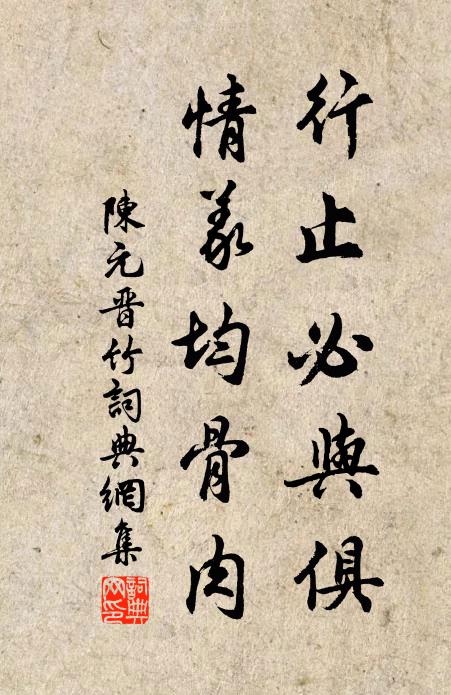 行止必與俱
情義均骨肉
陳元晋竹詞典網集
詞典網印